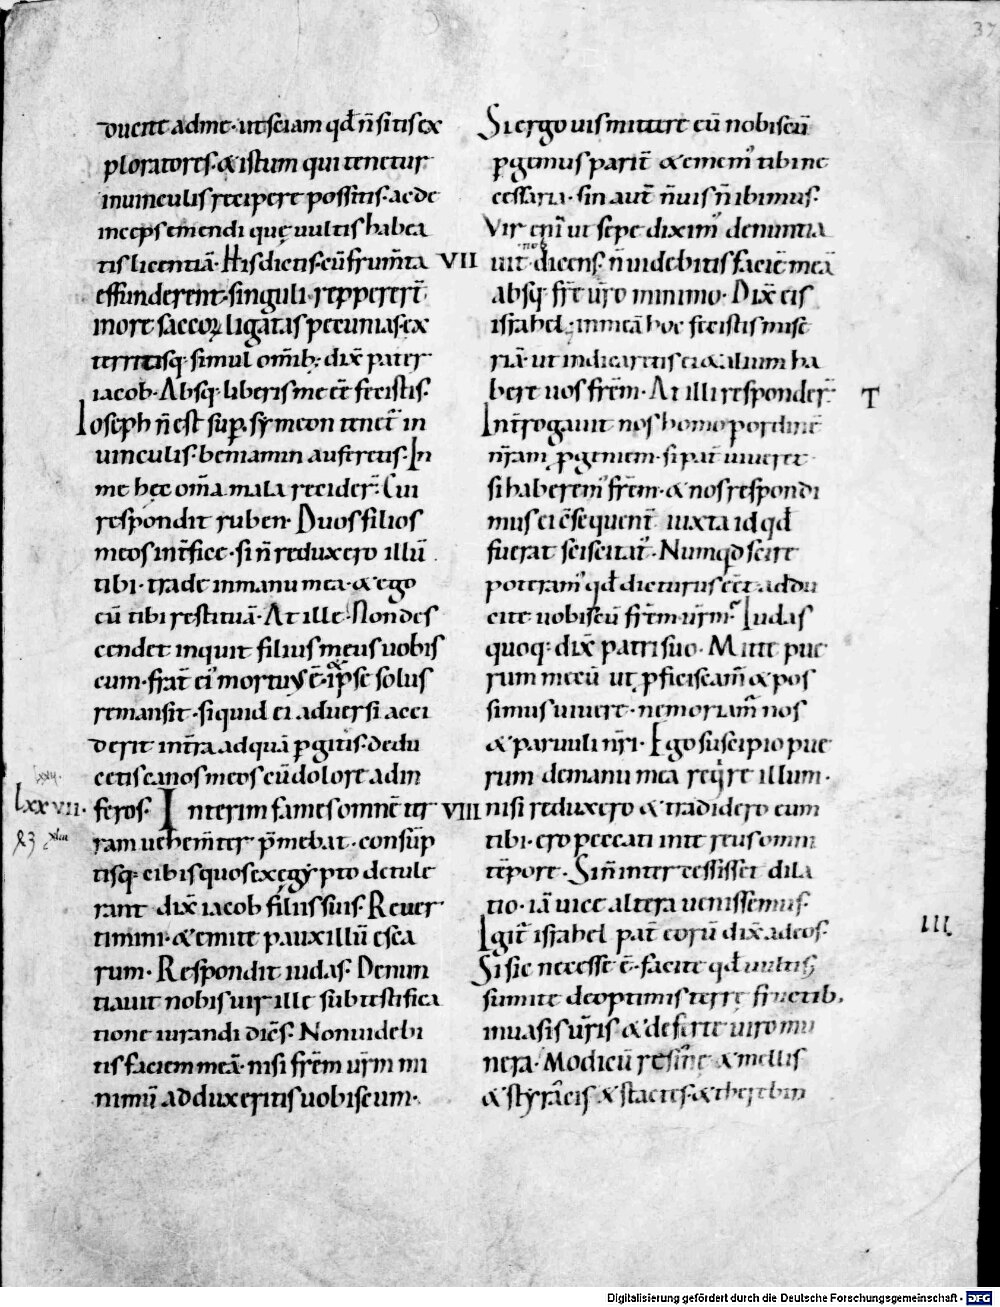 37
ducite ad me· ut sciam qđ n̄ sitis ex
ploratores· & istum qui tenetur
inuinculis recipere possitis· ac de
inceps emendi quę uultis habea
tis licentiā· His dictis· cū frum̄ta
effunderent· singuli· reppererr̄t
in ore saccoꝝ ligatas pecunias· ex
territisq· simul om̄ib;· dix̄ pater
iacob· Absq· liberis me eē fecistis·
Ioseph n̄ est sup̱· symeon tenet̄ in
uinculis· beniamin auferetis· In
me hęc om̄a mala recider̄· Cui
respondit ruben· Duos filios
meos int̄fice· si n̄ reduxero illū
tibi· trade inmanu mea· & ego
eū tibi restituā· At ille· Non des
cendet inquit filius meus uobis
cum· frat̄ ei' mortuus ē· ipse solus
remansit· siquid ei aduersi acci
derit int̄ra ad quā ꝑgitis· dedu
cetis canos meos cū dolore ad in
lxxvii·
feros· Interim fames omnē ter
ram uehem̄ter p̄mebat· consūp
tisq· cibis quos ex egypto detule
rant dix̄ iacob filiis suis· Reuer
timini· & emite pauxillū esca
rum· Respondit iudas· Denun
tiauit nobis uir ille sub testifica
tione iurandi dic̄s· Non uidebi
tis faciem meā· nisi fr̄em ur̄m mi
nimū adduxeritis uobiscum·
Si ergo uis mittere eū nobiscū
ꝑgemus parit̄ & emem' tibi ne
cessaria· sin aut̄ n̄ uis n̄ ibimus·
Vir eni' ut sepe dixim' denuntia
VII
uit nob dicens· n̄ uidebitis faciē meā
absq· fr̄e ur̄o minimo· Dix̄ eis
israhel· inmeā hoc fecistis mise
riā· ut indicaretis ei & alium ha
bere uos fr̄em· At illi responder̄·
T
Int̄rogauit nos homo ꝑordinē
nr̄am ꝓgeniem· si pat̄ uiueret·
si haberem' fr̄em· & nos respondi
mus ei c̄sequent̄ iuxta id qđ
fuerat sciscitat'· Numqđ scire
poteram' qđ dicturus eēt· addu
cite uobiscū fr̄em ur̄m· Iudas
quoq· dix̄ patri suo· Mitte pue
rum mecū ut ꝓficiscam̄ & pos
simus uiuere· ne moriam̄ nos
& paruuli nr̄i· Ego suscipio pue
rum· de manu mea reqꞌre illum·
VIII
nisi reduxero & tradidero eum
tibi· ero peccati inte reus omni
tēpore· Si n̄ intercessisset dila
tio· iā uice altera uenissemus·
Igit̄ israhel pat̄ eorū dix̄ ad eos·
III
Si sic necesse ē· facite qđ uultis
sumite de optimis terre fructib,
inuasis ur̄is & deferte uiro mu
nera· Modicū resine & mellis
& styracis & stactes· & therebin
Digitalisierung gefördert durch die Deutsche Forschungsgemeinschaft - DFG